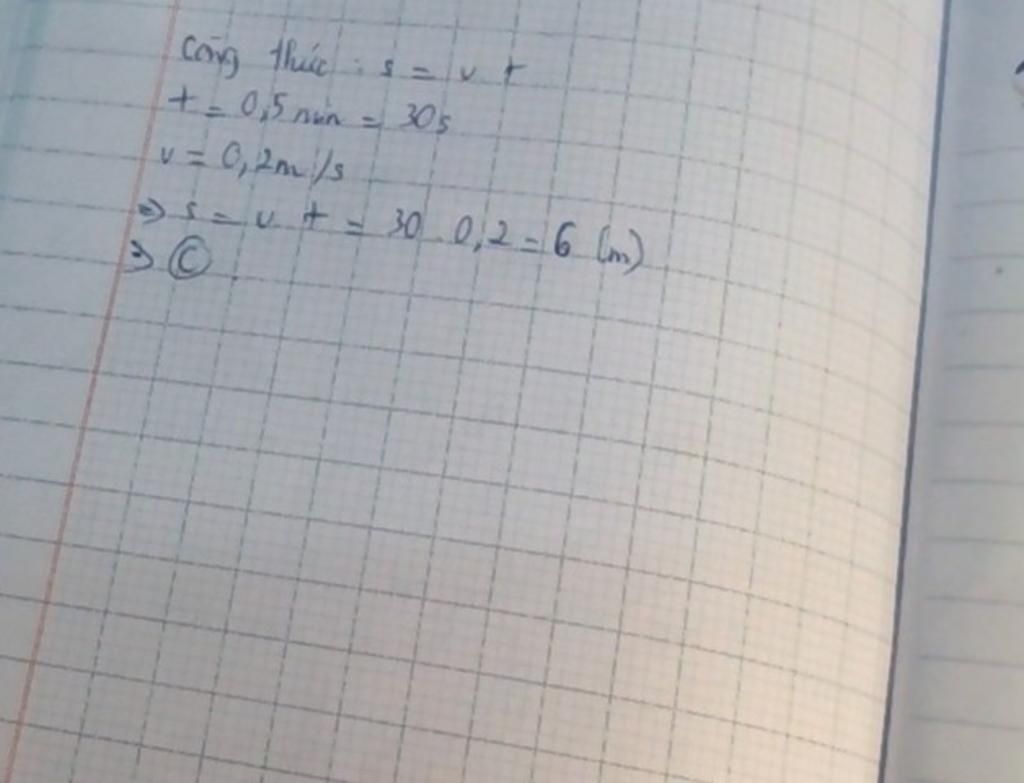 Công thức : s = v t
t = 0,5 min = 30s
v = 0,2m/s
=> s = v t = 30 . 0,2 = 6 (m)
=> Ⓒ